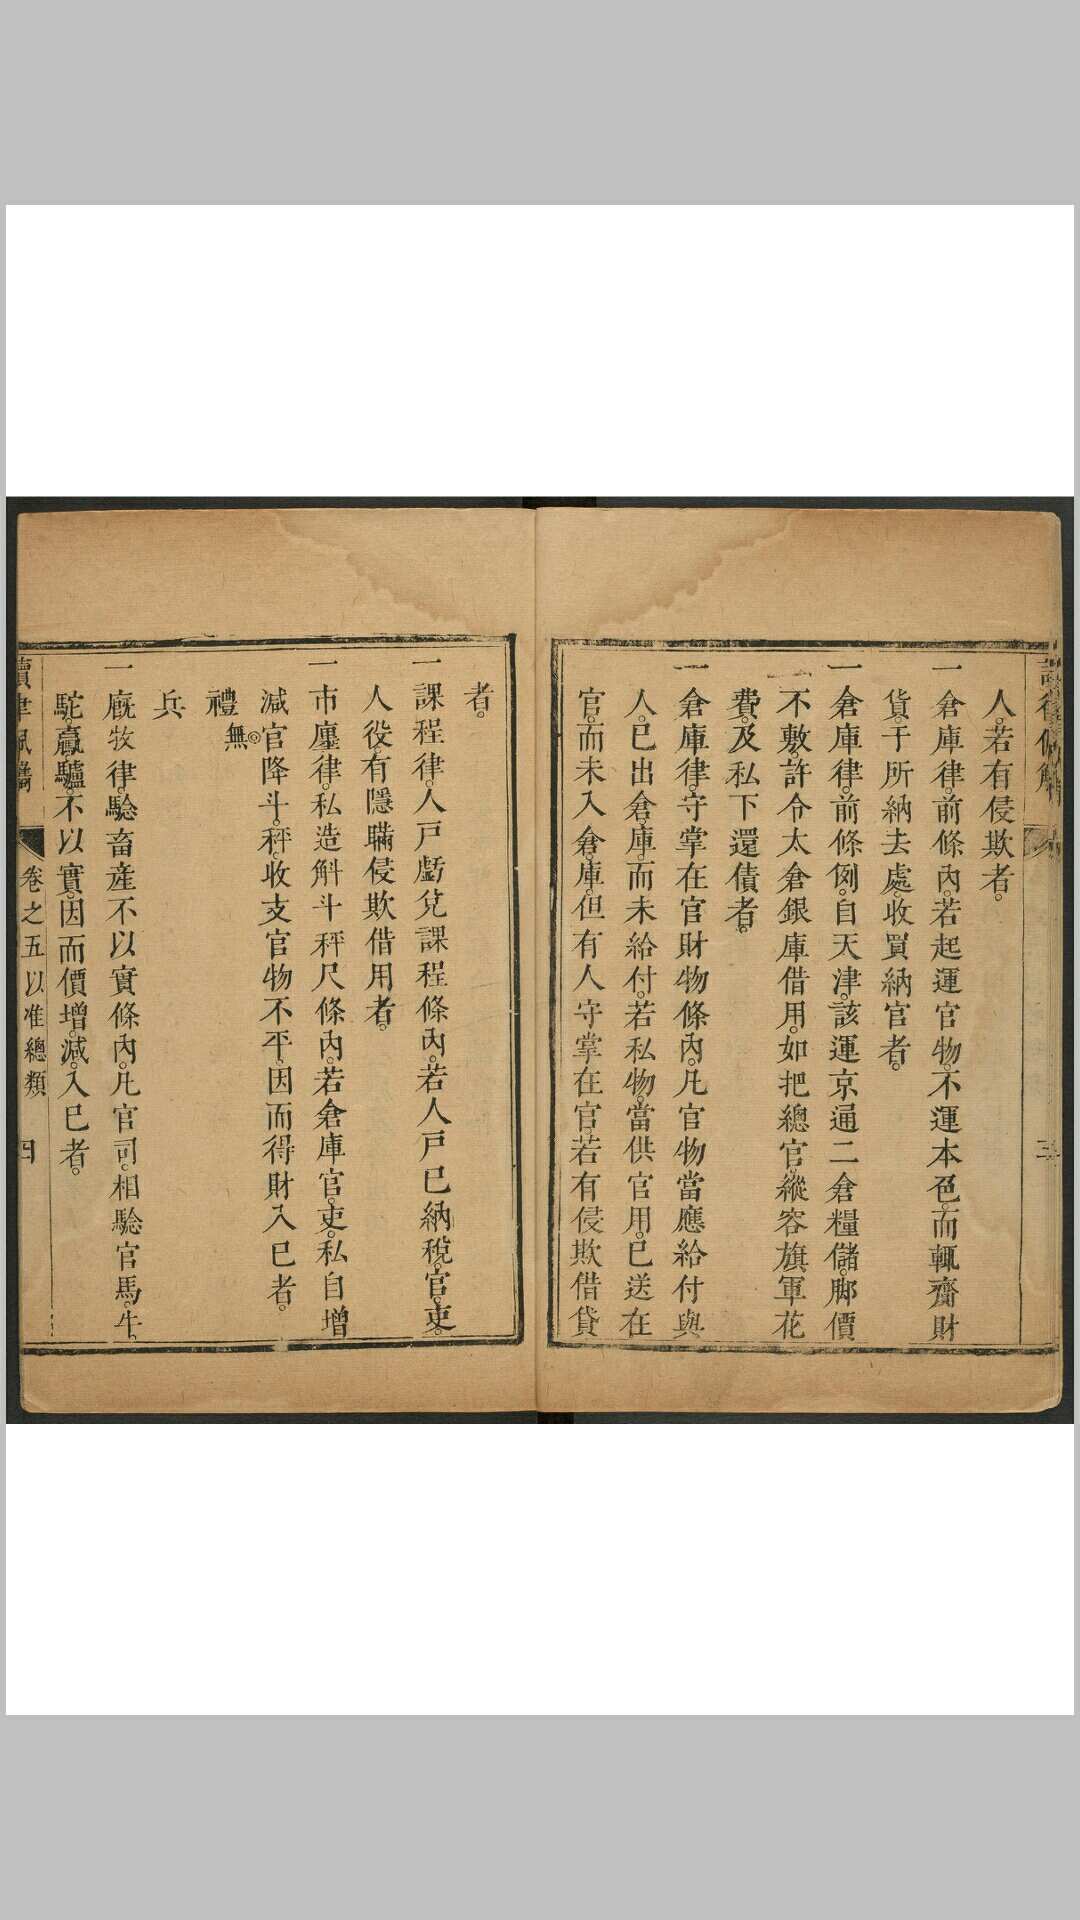 三
人。若有侵欺者。
一倉庫律。前條內。若起運官物。不運本色。而輒齎財
貨。于所納去處。收買納官者。
一倉庫律。前條例。自天津。該運京通二倉糧儲。脚價
不敷。許令太倉銀庫借用。如把總官。縱容旗軍花
費。及私下還債者。
一倉庫律。守掌在官財物條內。凡官物當應給付與
人。已出倉。庫。而未給付。若私物。當供官用。已送在
官。而未入倉。庫。但有人守掌在官。若有侵欺借貸
者。
一課程律。人戶虧兌課程條內。若人戶已納稅。官。吏。
人役。有隱瞞侵欺借用者。
一市廛律。私造斛斗秤尺條內。若倉庫官。吏。私自增
減官降斗。秤。收支官物不平。因而得財入已者。
禮 無◎
兵
一廐牧律。驗畜產不以實條內。凡官司。相驗官馬。牛。
駝。驘。驢。不以實。因而價增。減。入已者。
卷之五 以准總類 四